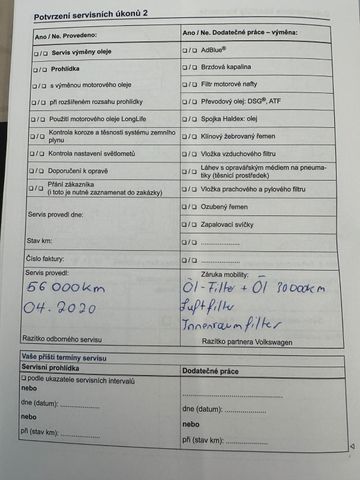 Potvrzení servisních úkonů 2
Ano / Ne. Provedeno:
❑ / ❑ Servis výměny oleje
❑ / ❑ Prohlídka
❑ / ❑ s výměnou motorového oleje
❑ / ❑ při rozšířeném rozsahu prohlídky
❑ / ❑ Použití motorového oleje LongLife
❑ / ❑ Kontrola koroze a těsnosti systému zemního
plynu
❑ / ❑ Kontrola nastavení světlometů
❑ / ❑ Doporučení k opravě
❑ / ❑ Přání zákazníka
(i toto je nutné zaznamenat do zakázky)
Servis provedl dne:
Stav km:
Číslo faktury:
Servis provedl:
56 000km
04.2020
Razítko odborného servisu
Ano / Ne. Dodatečné práce – výměna:
❑ / ❑ AdBlue®
❑ / ❑ Brzdová kapalina
❑ / ❑ Filtr motorové nafty
❑ / ❑ Převodový olej: DSG®, ATF
❑ / ❑ Spojka Haldex: olej
❑ / ❑ Klínový žebrovaný řemen
❑ / ❑ Vložka vzduchového filtru
❑ / ❑ Láhev s opravářským médiem na pneuma-
tiky (těsnicí prostředek)
❑ / ❑ Vložka prachového a pylového filtru
❑ / ❑ Ozubený řemen
❑ / ❑ Zapalovací svíčky
❑ / ❑ ....................
❑ / ❑ ....................
Záruka mobility:
Öl-Filter + Öl 30000km
Luftfilter
Innenraumfilter
Razítko partnera Volkswagen
Vaše příští termíny servisu
Servisní prohlídka
❑ podle ukazatele servisních intervalů
nebo
dne (datum): ....................
nebo
při (stav km): ....................
Dodatečné práce
....................
nebo
dne (datum): ....................
nebo
při (stav km): ....................